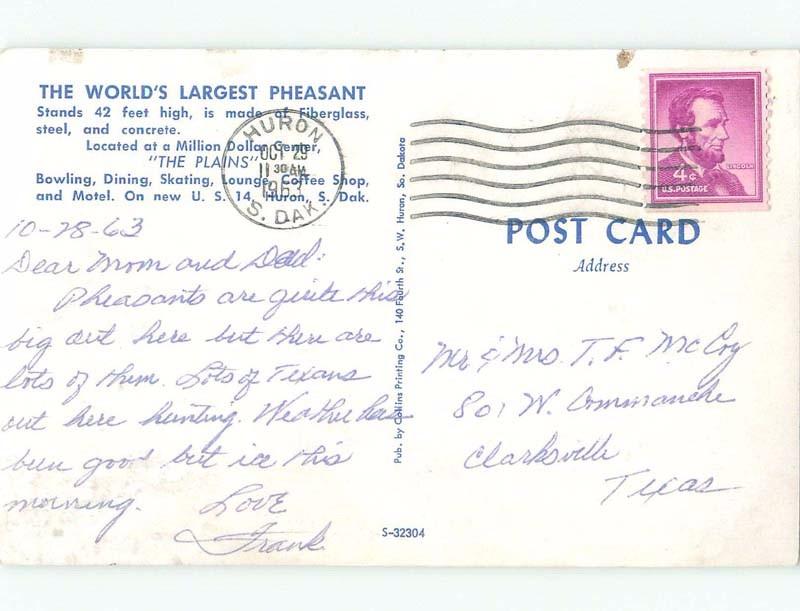 THE WORLD'S LARGEST PHEASANT
Stands 42 feet high, is made of Fiberglass,
steel, and concrete.
Located at a Million Dollar Center,
"THE PLAINS"
Bowling, Dining, Skating, Lounge, Coffee Shop,
and Motel. On new U. S. 14, Huron, S. Dak.
HURON
OCT 29
11 30 AM
1963
S. DAK.
LINCOLN
4¢
U.S. POSTAGE
10-28-63
Dear Mom and Dad:
Pheasants are quite this
big out here but there are
lots of them. Lots of Texans
out here hunting. Weather has
been good but ice this
morning. Love
Frank
Pub. by Collins Printing Co., 140 Fourth St., S.W. Huron, So. Dakota
S-32304
POST CARD
Address
Mr & Mrs. T. F. McCoy
801 W. Commanche
Clarksville
Texas